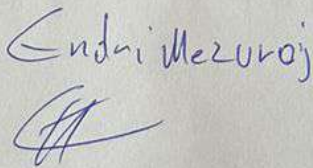 Endri Mezuroj